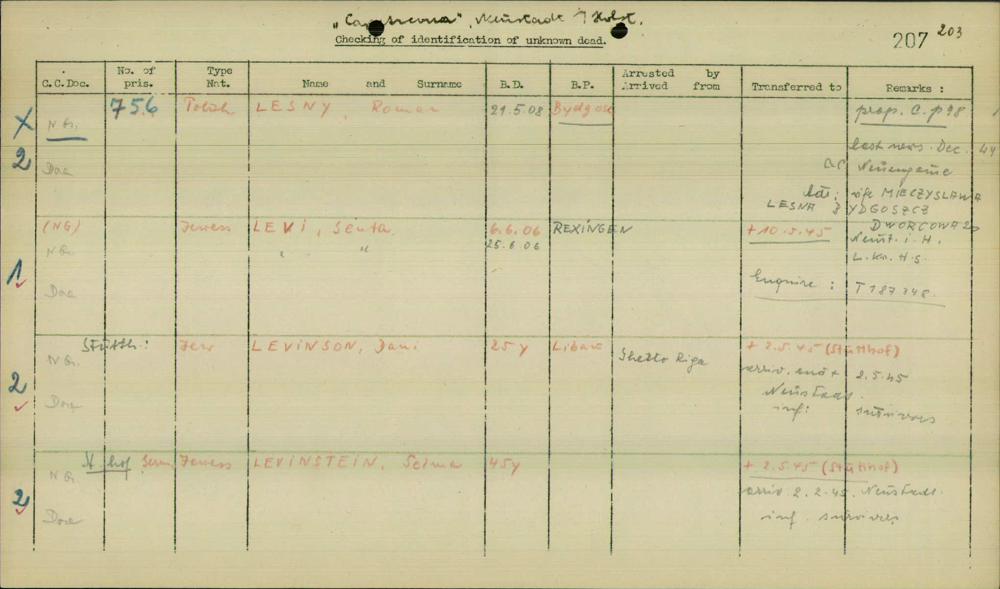 "Cap Arcona", Neustadt i Holst.
Checking of identification of unknown dead.
207 203
C.C.Doc. No. of pris. Type Nat. Name and Surname B.D. B.P. Arrested by Arrived from Transferred to Remarks :
X 756 Polish LESNY, Roman 21.5.08 Bydgosc prop. C. p 98
N Gr.
2 last news. Dec. 44
Doc Neuengame
LESNA MIECZYSLAWA
BYDGOSZCZ
(NG) Jewess LEVI, Senta 6.6.06 REXINGEN + 10.5.45 DWORCOWA 20
N Gr. " " 25.6.06 Neust. i. H.
L. Kr. H. S.
1 Doc Enquire : T 187348.
Stutth: Jew LEVINSON, Jani 25 y Libau Ghetto Riga + 2.5.45 (Stutthof)
N Gr. arriv. 2.5.45
2 Doc Neustadt.
inf: survivors
St. hof Jewess LEVINSTEIN, Selma 45y + 2.5.45 (Stutthof)
N Gr. arriv. 2.2.45. Neustadt.
2 Doc inf. survivors